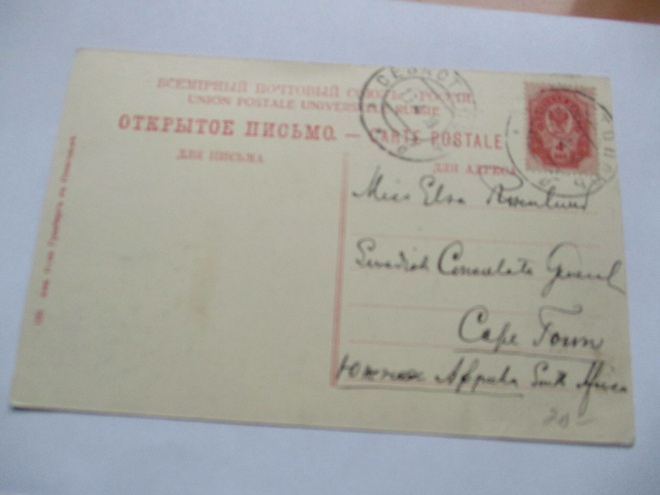 ВСЕМІРНЫЙ ПОЧТОВЫЙ СОЮЗЪ. РОССІЯ.
UNION POSTALE UNIVERSELLE. RUSSIE
ОТКРЫТОЕ ПИСЬМО. — CARTE POSTALE
ДЛЯ ПИСЬМА
ДЛЯ АДРЕСА
СЕВАСТ
Miss Elsa
Swedish Consulate General
Cape Town
Южная Африка South Africa
20 -